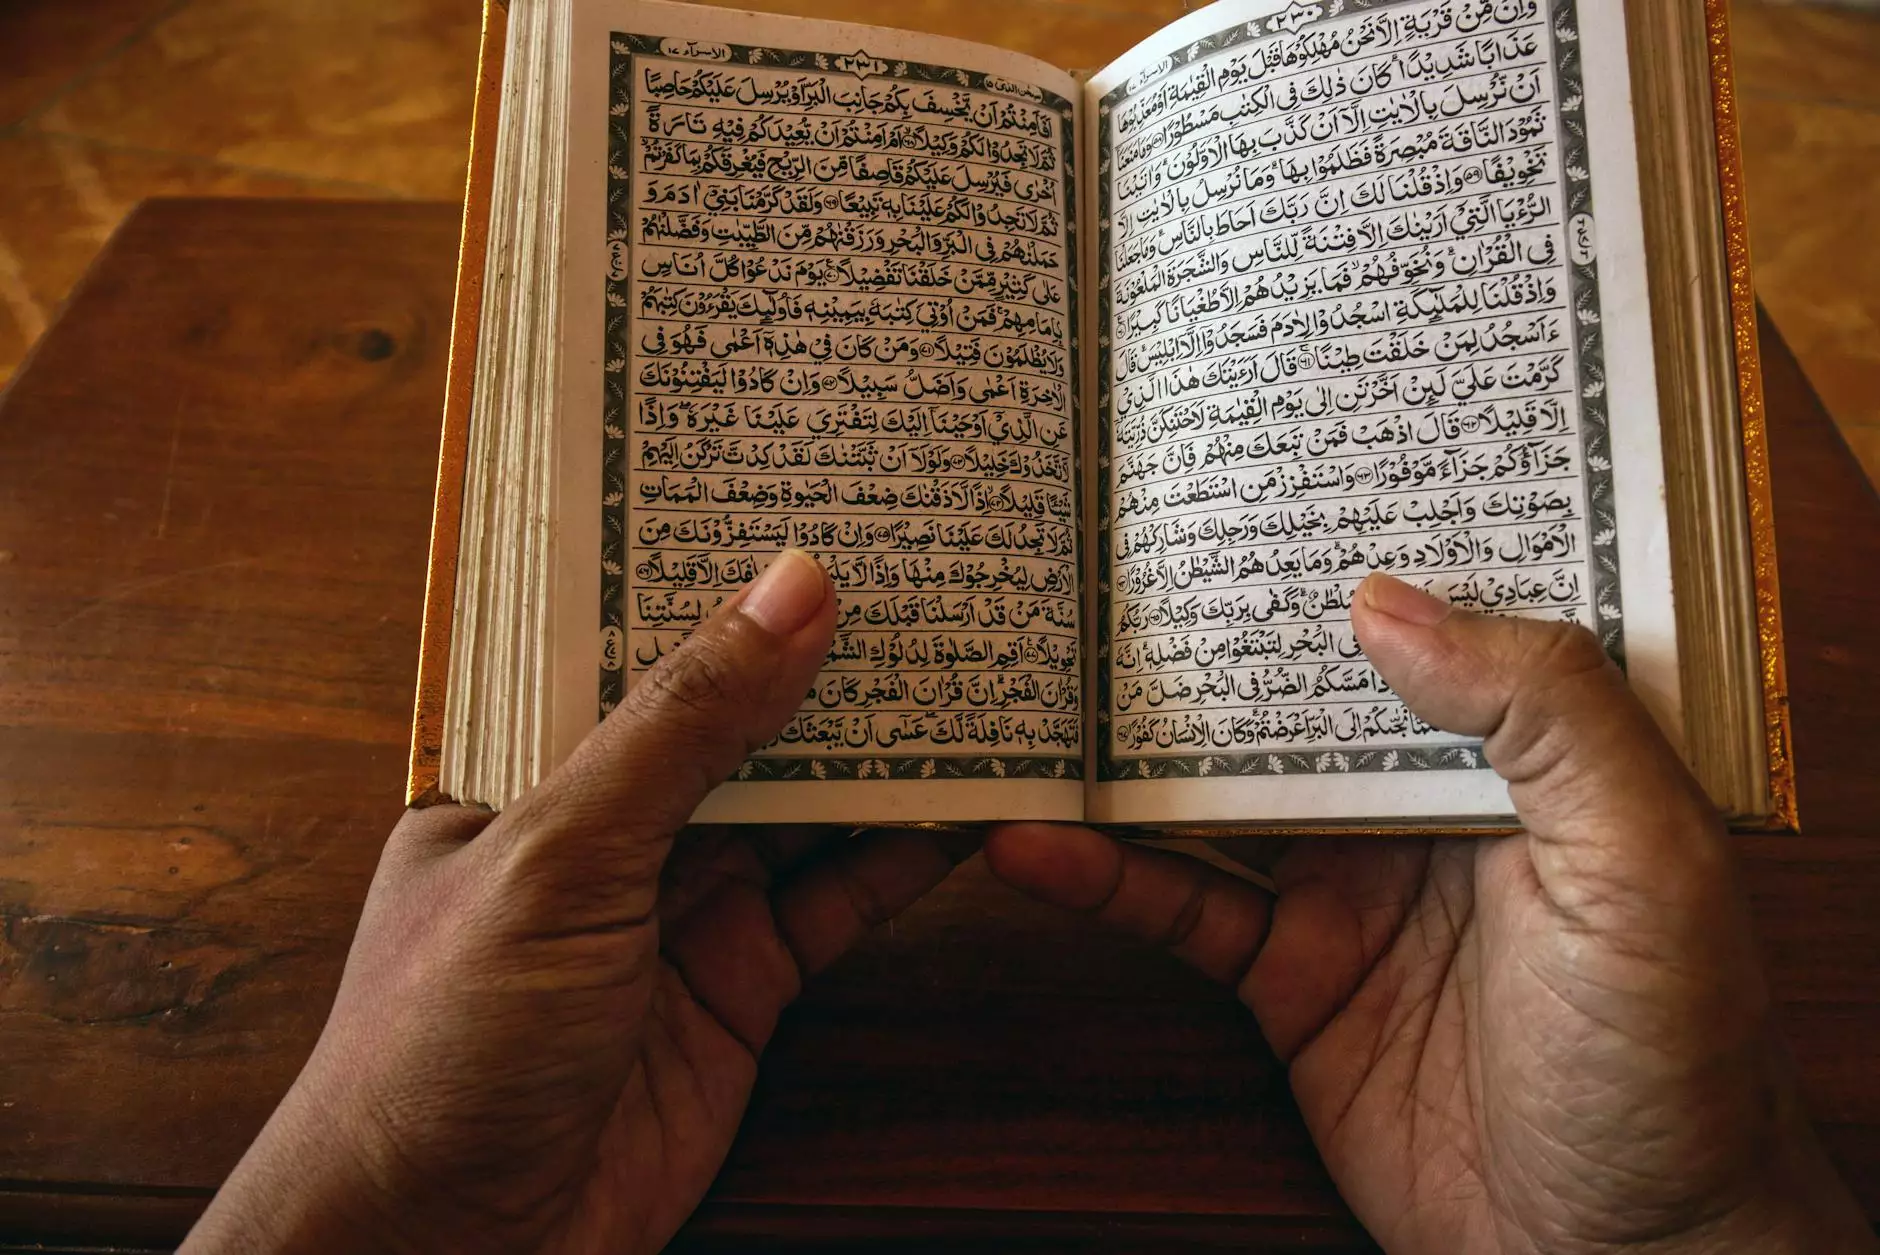 ٢٣٠
الاسرآء ١٧
وَاِنْ مِّنْ قَرْيَةٍ اِلَّا نَحْنُ مُهْلِكُوْهَا قَبْلَ يَوْمِ الْقِيٰمَةِ اَوْ مُعَذِّبُوْهَا
عَذَابًا شَدِيْدًا ۗ كَانَ ذٰلِكَ فِى الْكِتٰبِ مَسْطُوْرًا ٥٨ وَمَا مَنَعَنَآ
اَنْ نُّرْسِلَ بِالْاٰيٰتِ اِلَّآ اَنْ كَذَّبَ بِهَا الْاَوَّلُوْنَ ۗ وَاٰتَيْنَا
ثَمُوْدَ النَّاقَةَ مُبْصِرَةً فَظَلَمُوْا بِهَا ۗ وَمَا نُرْسِلُ بِالْاٰيٰتِ اِلَّا
تَخْوِيْفًا ٥٩ وَاِذْ قُلْنَا لَكَ اِنَّ رَبَّكَ اَحَاطَ بِالنَّاسِ ۗ وَمَا جَعَلْنَا
الرُّءْيَا الَّتِيْٓ اَرَيْنٰكَ اِلَّا فِتْنَةً لِّلنَّاسِ وَالشَّجَرَةَ الْمَلْعُوْنَةَ
فِى الْقُرْاٰنِ ۗ وَنُخَوِّفُهُمْ ۙ فَمَا يَزِيْدُهُمْ اِلَّا طُغْيَانًا كَبِيْرًا ٦٠
وَاِذْ قُلْنَا لِلْمَلٰٓئِكَةِ اسْجُدُوْا لِاٰدَمَ فَسَجَدُوْٓا اِلَّآ اِبْلِيْسَ ۗ قَالَ
ءَاَسْجُدُ لِمَنْ خَلَقْتَ طِيْنًا ٦١ قَالَ اَرَءَيْتَكَ هٰذَا الَّذِيْ
كَرَّمْتَ عَلَيَّ لَئِنْ اَخَّرْتَنِ اِلٰى يَوْمِ الْقِيٰمَةِ لَاَحْتَنِكَنَّ ذُرِّيَّتَهٗٓ
اِلَّا قَلِيْلًا ٦٢ قَالَ اذْهَبْ فَمَنْ تَبِعَكَ مِنْهُمْ فَاِنَّ جَهَنَّمَ
جَزَآؤُكُمْ جَزَآءً مَّوْفُوْرًا ٦٣ وَاسْتَفْزِزْ مَنِ اسْتَطَعْتَ مِنْهُمْ
بِصَوْتِكَ وَاَجْلِبْ عَلَيْهِمْ بِخَيْلِكَ وَرَجِلِكَ وَشَارِكْهُمْ فِى
الْاَمْوَالِ وَالْاَوْلَادِ وَعِدْهُمْ ۗ وَمَا يَعِدُهُمُ الشَّيْطٰنُ اِلَّا غُرُوْرًا ٦٤
اِنَّ عِبَادِيْ لَيْسَ سُلْطٰنٌ ۗ وَكَفٰى بِرَبِّكَ وَكِيْلًا ٦٥ رَبُّكُمُ
فِى الْبَحْرِ لِتَبْتَغُوْا مِنْ فَضْلِهٖ ۗ اِنَّهٗ
مَسَّكُمُ الضُّرُّ فِى الْبَحْرِ ضَلَّ مَنْ
نَجّٰىكُمْ اِلَى الْبَرِّ اَعْرَضْتُمْ ۗ وَكَانَ الْاِنْسَانُ كَفُوْرًا ٦٧
سبحن الذى ١٥
٢٣١
الاسرآء ١٧
اَفَاَمِنْتُمْ اَنْ يَّخْسِفَ بِكُمْ جَانِبَ الْبَرِّ اَوْ يُرْسِلَ عَلَيْكُمْ حَاصِبًا
ثُمَّ لَا تَجِدُوْا لَكُمْ وَكِيْلًا ٦٨ اَمْ اَمِنْتُمْ اَنْ يُّعِيْدَكُمْ فِيْهِ تَارَةً
اُخْرٰى فَيُرْسِلَ عَلَيْكُمْ قَاصِفًا مِّنَ الرِّيْحِ فَيُغْرِقَكُمْ بِمَا كَفَرْتُمْ ۙ
ثُمَّ لَا تَجِدُوْا لَكُمْ عَلَيْنَا بِهٖ تَبِيْعًا ٦٩ وَلَقَدْ كَرَّمْنَا بَنِيْٓ اٰدَمَ وَ
حَمَلْنٰهُمْ فِى الْبَرِّ وَالْبَحْرِ وَرَزَقْنٰهُمْ مِّنَ الطَّيِّبٰتِ وَفَضَّلْنٰهُمْ
عَلٰى كَثِيْرٍ مِّمَّنْ خَلَقْنَا تَفْضِيْلًا ٧٠ يَوْمَ نَدْعُوْا كُلَّ اُنَاسٍۢ
بِاِمَامِهِمْ ۚ فَمَنْ اُوْتِيَ كِتٰبَهٗ بِيَمِيْنِهٖ فَاُولٰٓئِكَ يَقْرَءُوْنَ كِتٰبَهُمْ
وَلَا يُظْلَمُوْنَ فَتِيْلًا ٧١ وَمَنْ كَانَ فِيْ هٰذِهٖٓ اَعْمٰى فَهُوَ فِى
الْاٰخِرَةِ اَعْمٰى وَاَضَلُّ سَبِيْلًا ٧٢ وَاِنْ كَادُوْا لَيَفْتِنُوْنَكَ
عَنِ الَّذِيْٓ اَوْحَيْنَآ اِلَيْكَ لِتَفْتَرِيَ عَلَيْنَا غَيْرَهٗ ۖ وَاِذًا
لَّاتَّخَذُوْكَ خَلِيْلًا ٧٣ وَلَوْلَآ اَنْ ثَبَّتْنٰكَ لَقَدْ كِدْتَّ تَرْكَنُ اِلَيْهِمْ
شَيْـًٔا قَلِيْلًا ٧٤ اِذًا لَّاَذَقْنٰكَ ضِعْفَ الْحَيٰوةِ وَضِعْفَ الْمَمَاتِ
ثُمَّ لَا تَجِدُ لَكَ عَلَيْنَا نَصِيْرًا ٧٥ وَاِنْ كَادُوْا لَيَسْتَفِزُّوْنَكَ مِنَ
الْاَرْضِ لِيُخْرِجُوْكَ مِنْهَا وَاِذًا لَّا اِلَّا قَلِيْلًا ٧٦
سُنَّةَ مَنْ قَدْ اَرْسَلْنَا قَبْلَكَ مِنْ لِسُنَّتِنَا
تَحْوِيْلًا ٧٧ اَقِمِ الصَّلٰوةَ لِدُلُوْكِ
وَقُرْاٰنَ الْفَجْرِ ۗ اِنَّ قُرْاٰنَ الْفَجْرِ كَانَ
فَتَهَجَّدْ بِهٖ نَافِلَةً لَّكَ ۖ عَسٰٓى اَنْ يَّبْعَثَكَ